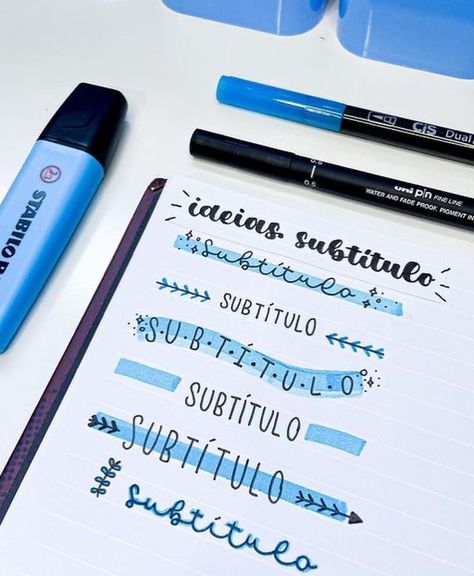 CiS Dual
0.5
0.5
uni pin FINE LINE
WATER AND FADE PROOF, PIGMENT IN
STABILO B
ideias subtítulo
Subtítulo
SUBTÍTULO
S·U·B·T·Í·T·U·L·O
SUBTÍTULO
SUBTÍTULO
subtítulo